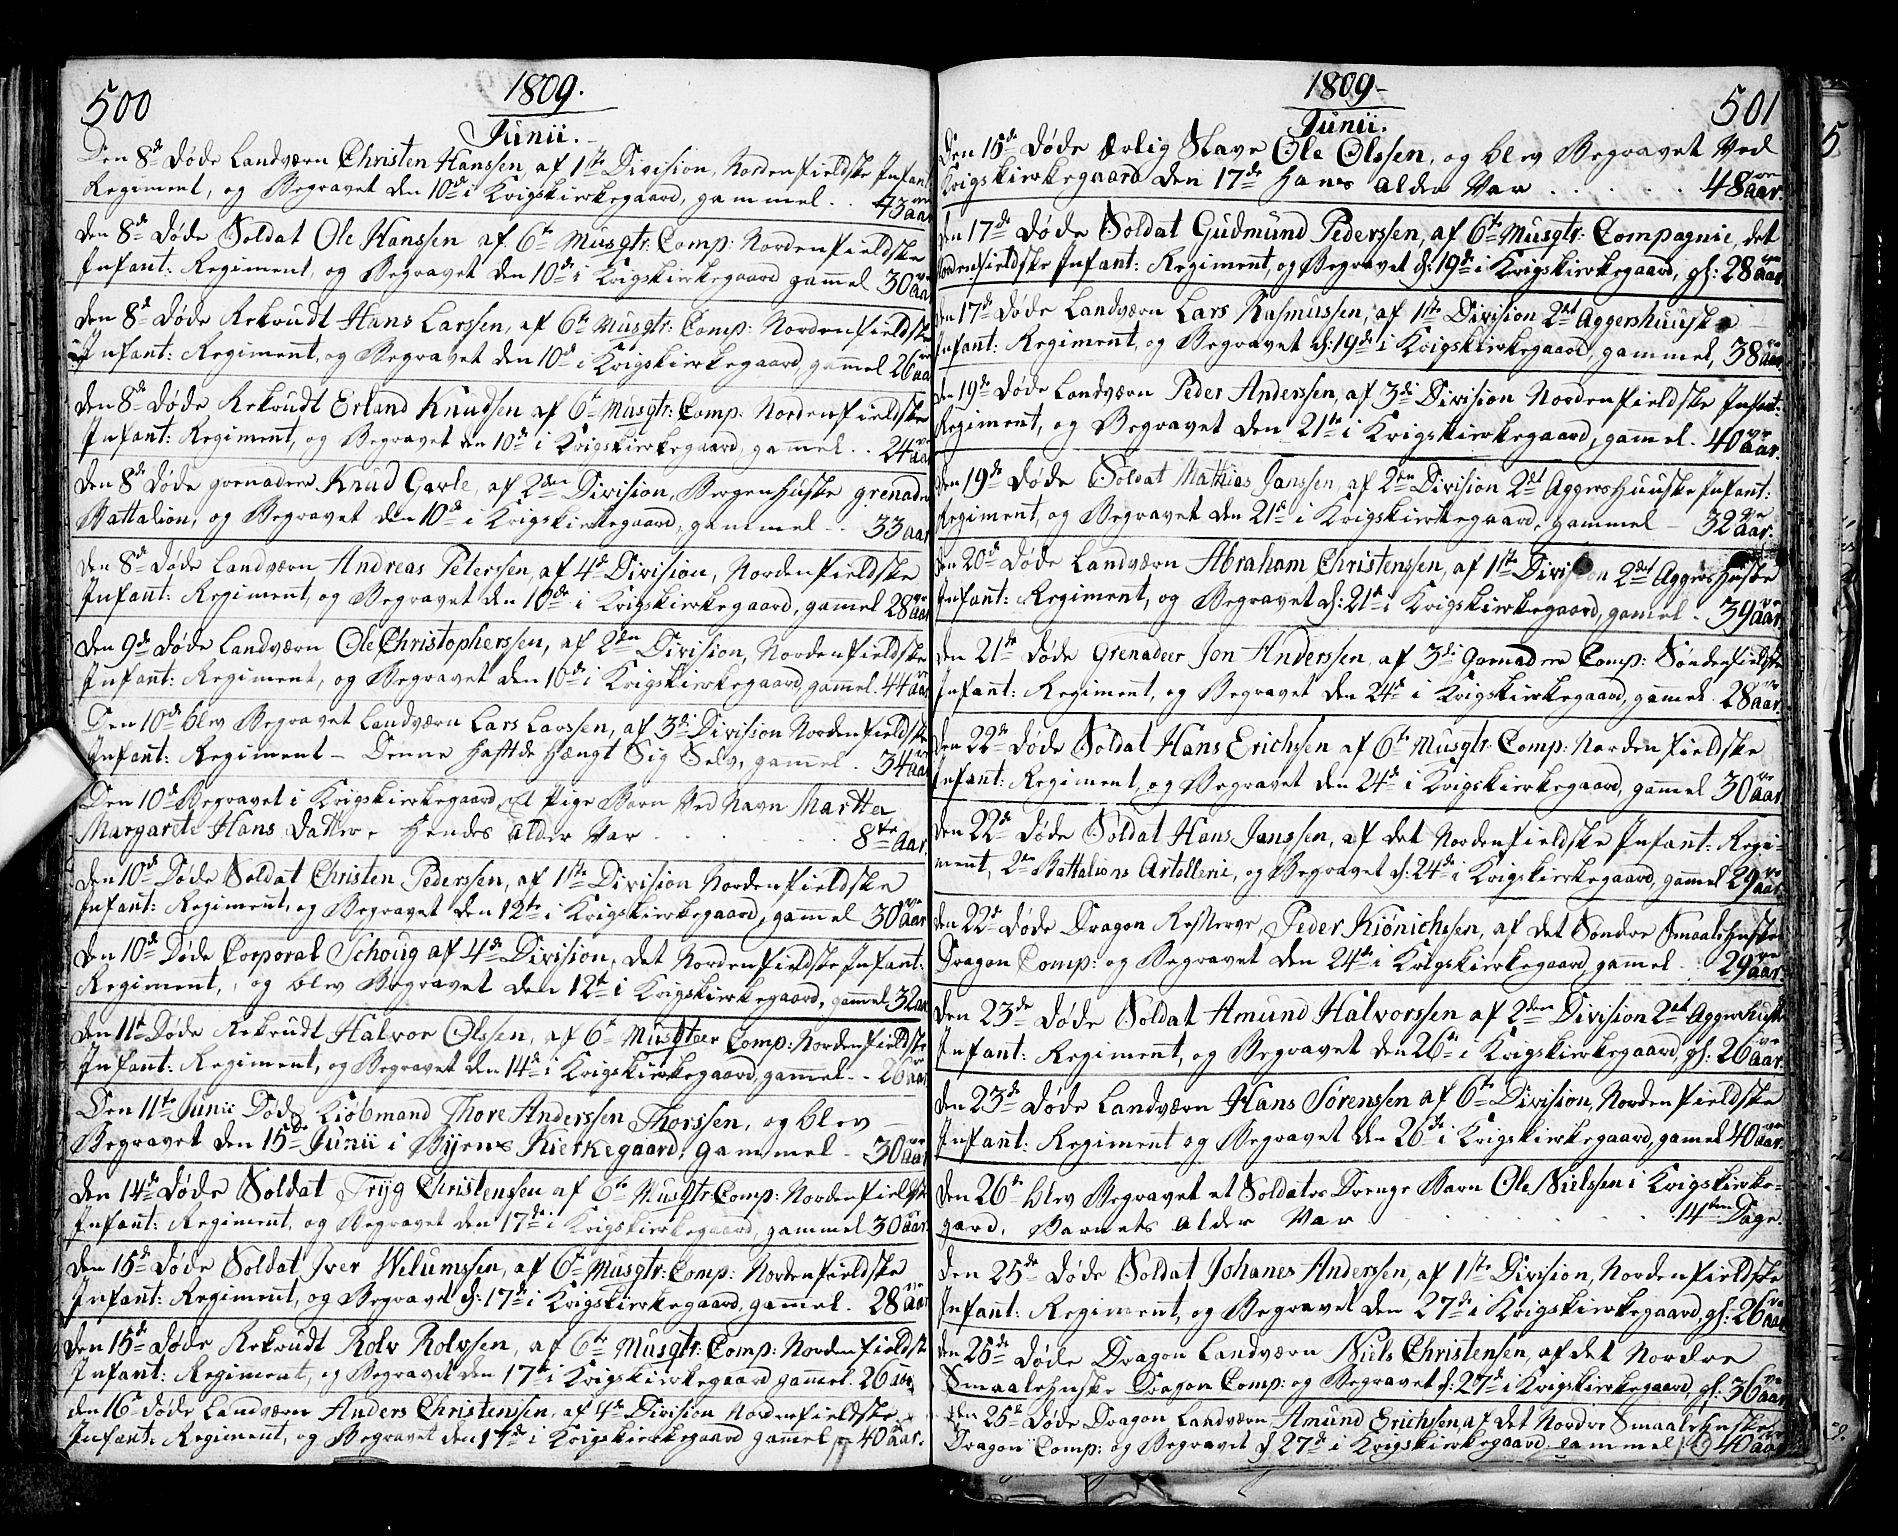 500
1809.
Junii.
Den 8de Døde Landværn Christen Hanssen, af 1ste Division, Nordenfieldske Infant:
Regiment, og Begravet den 10de i Krigskierkegaard, gammel . . 43 aar
Den 8de Døde Soldat Ole Hanssen af 6te Musqtr: Comp: Nordenfieldske
Infant: Regiment, og Begravet den 10de i Krigskierkegaard gam̄el 30 aar
Den 8de Døde Rekrudt Hans Larssen, af 6te Musqtr: Comp: Nordenfieldske
Infant: Regiment, og Begravet den 10de i Krigskierkegaard, gam̄el 26 aar
Den 8de Døde Rekrudt Erland Knudsen af 6te Musqtr: Comp: Nordenfieldske
Infant: Regiment, og Begravet den 10de i Krigskierkegaard, gammel . . 24 aar
Den 8de Døde grenadeer Knud Garle, af 2den Division, Bergenhuske grenadeer
Battalion, og Begravet den 10de i Krigskierkegaard, gammel . . 33 aar
Den 8de Døde Landværn Andreas Peterssen, af 4de Division, Nordenfieldske
Infant: Regiment, og Begravet den 10de i Krigskierkegaard, gam̄el 28 aar
Den 9de Døde Landværn Ole Christopherssen, af 2den Division, Nordenfieldske
Infant: Regiment, og Begravet den 10de i Krigskierkegaard, gam̄el. 44 aar
Den 10de blev Begravet Landværn Lars Larssen, af 3die Division Nordenfieldske
Infant: Regiment – Denne hafde hængt Sig Selv, gamel . 34 aar
Den 10de Begravet i Krigskierkegaard, et Pige Barn Ved Navn Martha
Margarete Hans Datter, Hendes Alder Var . . . 8te Aar.
Den 10de Døde Soldat Christen Pederssen, af 1ste Division Nordenfieldske
Infant: Regiment, og Begravet den 12te i Krigskierkegaard, gam̄el 30 aar
Den 10de Døde Corporal Schoug af 4de Division, det Nordenfieldske Infant:
Regiment, og blev Begravet den 12te i Krigskierkegaard, gam̄el 32 aar
Den 11te Døde Rekrudt Halvor Olssen, af 6te Musqteer Comp: Nordenfieldske
Infant: Regiment, og Begravet den 14de i Krigskierkegaard, gam̄el . . 26 aar
Den 11te Junii Døde Kiøbmand Thore Anderssen Thorssen, og blev
Begravet den 15de Junii i Byens Kierkegaard, gammel . 30 aar
Den 14de Døde Soldat Tryg Christenssen af 6te Musqtr: Comp: Nordenfieldske
Infant: Regiment, og Begravet den 17de i Krigskierkegaard, gammel 30 aar
Den 15de Døde Soldat Iver Welumssen, af 6te Musqtr: Comp: Nordenfieldske
Infant: Regiment, og Begravet d: 17de i Krigskierkegaard, gam̄el. 28 aar
Den 15de Døde Rekrudt Rolv Rolvsen, af 6te Musqtr: Comp: Nordenfieldske
Infant: Regiment, og Begravet den 17de i Krigskierkegaard gam̄el. 26 aar
Den 16de døde Landværn Anders Christensen, af 4de Division Nordenfieldske
Infant: Regiment, og Begravet den 17de i Krigskierkegaard gam̄el 40 aar.
1809–
501
Junii.
Den 15de Døde Ærlig Slave Ole Olssen, og blev Begravet Ved
Krigskierkegaard den 17de hans Alder Var . . . . . 48 aar.
Den 17de Døde Soldat Gudmund Pederssen, af 6te Musqtr: Compagnie, det
Nordenfieldske Infant: Regiment, og Begravet d: 19de i Krigskierkegaard, gl: 28 aar
Den 17de Døde Landværn Lars Rasmussen, af 1ste Division 2det Aggershuuske
Infant: Regiment, og Begravet d: 19de i Krigskierkegaard, gammel, 38 aar
Den 19de Døde Landværn Peder Anderssen, af 3die Division Nordenfieldske Infant:
Regiment, og Begravet den 21de i Krigskierkegaard, gamel . 40 aar.
Den 19de Døde Soldat Mathias Janssen, af 2den Division 2det Aggershuuske Infant:
Regiment, og Begravet den 21de i Krigskierkegaard, gammel – 32 aar.
Den 20de Døde Landværn Abraham Christenssen, af 1ste Division 2det Aggershuske
Infant: Regiment, og Begravet d: 21de i Krigskierkegaard, gamel . 39 aar
Den 21de Døde Grenadeer Jon Anderssen, af 3die Grenadeer Comp: Søndenfieldske
Infant: Regiment, og Begravet den 24de i Krigskierkegaard, gam̄el . 28 aar
Den 22de Døde Soldat Hans Erichssen af 6te Musqtr: Comp: Nordenfieldske
Infant: Regiment, og Begravet den 24de i Krigskierkegaard, gam̄el 30 aar
Den 22de Døde Soldat Hans Janssen, af det Nordenfieldske Infant: Regi-
ment, 2den Battalions Artelleri, og Begravet d: 24de i Krigskierkegaard, gam̄el 29 aar
Den 22de Døde Dragon Resserve, Peder Kiønichssen, af det Søndre Smaalehnske
Dragon Comp: og Begravet den 24de i Krigskierkegaard, gam̄el . . 29 aar.
Den 23de Døde Soldat Amund Halvorssen af 2den Division 2det Aggershuske
Infant: Regiment, og Begravet den 26de i Krigskierkegaard, gl: 26 aar.
Den 23de Døde Landværn Hans Sørenssen af 6te Division, Nordenfieldske
Infant: Regiment og Begravet den 26de i Krigskierkegaard, gamel 40 aar.
Den 26de blev Begravet et Soldater Drenge Barn Ole Nielssen i Krigskierke-
gaard, Barnets Alder Var . . . . 14ten Dage.
Den 25de Døde Soldat Johanes Anderssen, af 1ste Division, Nordenfieldske
Infant: Regiment, og Begravet den 27de i Krigskierkegaard, gl: 26 aar
Den 25de Døde Dragon Landværn Niels Christensen, af det Nordre
Smaalehnske Dragon Comp: og Begravet d: 27de i Krigskierkegaard, gl: 36 aar
Den 25de Døde Dragon Landværn, Amund Erichsen, af det Nordre Smaalehnske
Dragon Comp: og Begravet d 27de i Krigskierkegaard gammel 40 aar